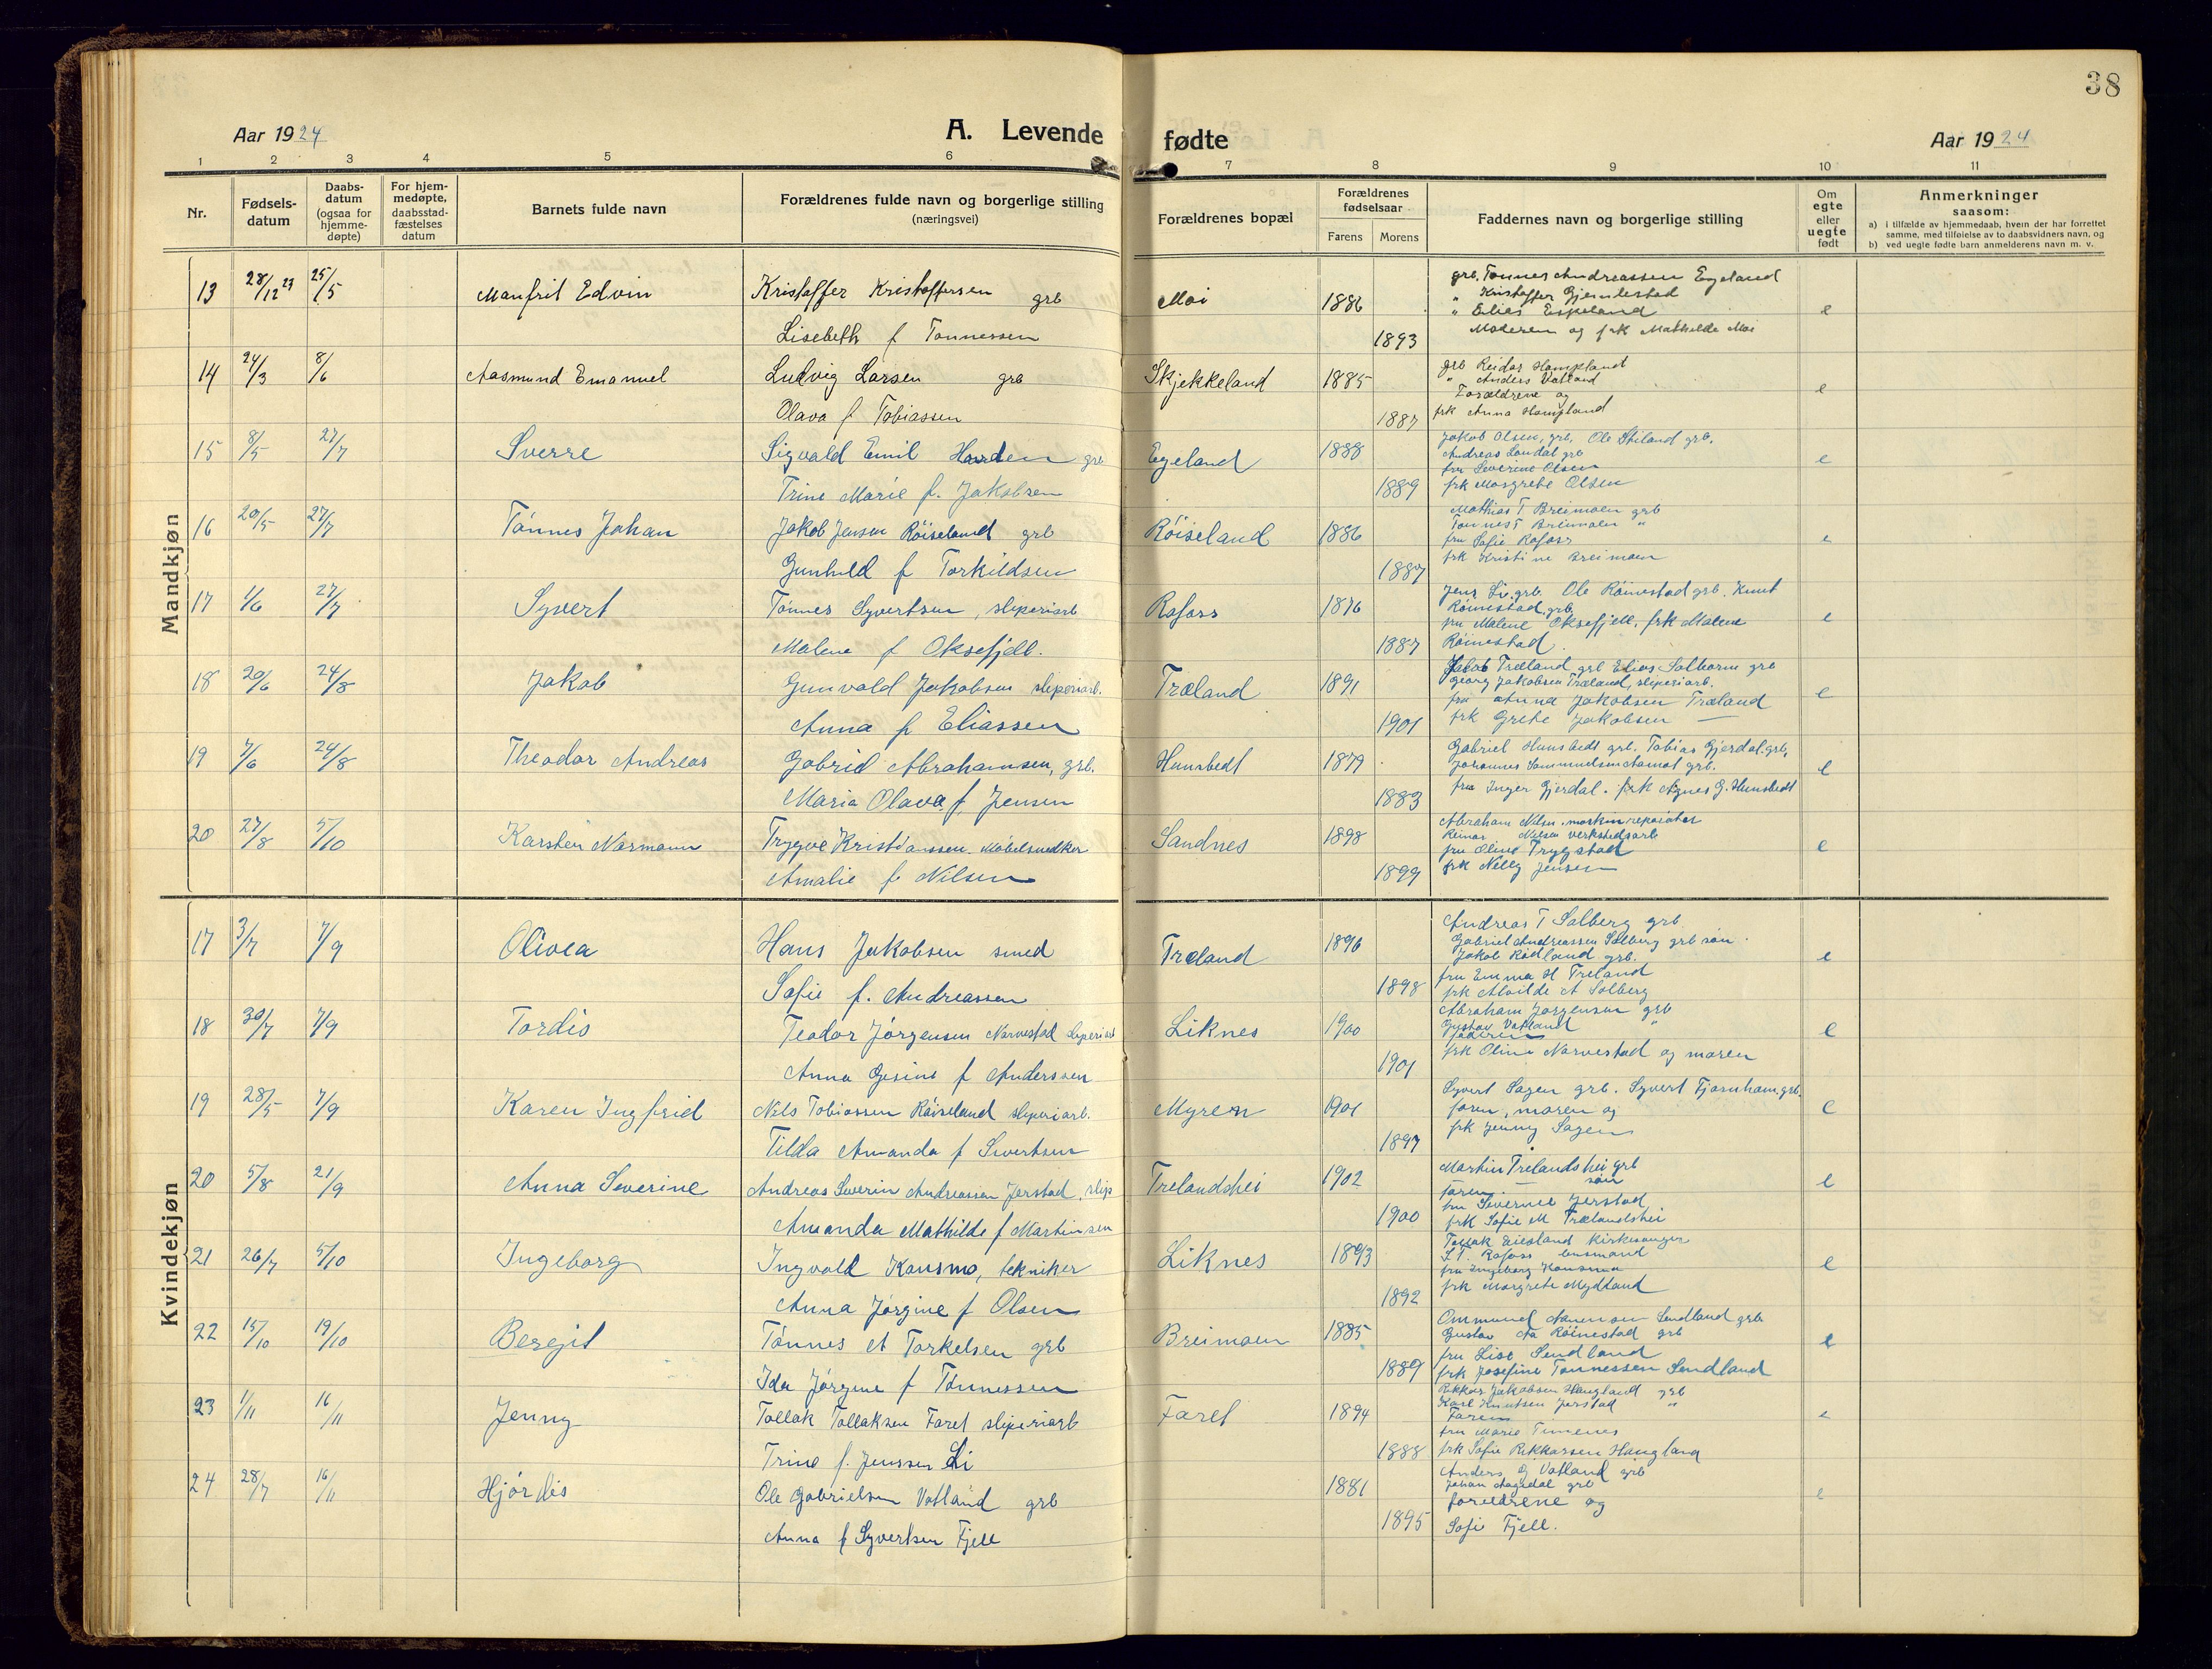 38
Aar 1924
A. Levende
fødte
Aar 1924
1 2 3 4 5 6 7 8 9 10 11
Nr.
Fødsels-
datum
Daabs-
datum
(ogsaa for
hjemme-
døpte)
For hjem-
medøpte,
daabsstad-
fæstelses
datum
Barnets fulde navn
Forældrenes fulde navn og borgerlige stilling
(næringsvei)
Forældrenes bopæl
Forældrenes
fødselsaar
Farens
Morens
Faddernes navn og borgerlige stilling
Om
egte
eller
uegte
født
Anmerkninger
saasom:
a) i tilfælde av hjemmedaab, hvem der har forrettet
samme, med tilføielse av to daabsvidners navn, og
b) ved uegte fødte barn anmelderens navn m. v.
Mandkjøn
13 28/12 23 25/5 Manfrit Edvin Kristoffer Kristoffersen grb Moi 1886 e
Lisebeth f Tonnessen 1893
grb. Tonnes Andreassen Egeland
" Kristoffer Gjemlestad
" Elias Eskeland
Moderen og frk Mathilde Moi
14 24/3 8/6 Aasmund Emanuel Ludvig Larsen grb Skjekkeland 1885 e
Olava f Tobiassen 1887
grb Reidar Hompland
" Anders Vatland
Forældrene og
frk Anna Hompland
15 8/5 27/7 Sverre Sigvald Emil Hordem grb Egeland 1888 e
Trine Marie f. Jakobsen 1889
Jakob Olsen, grb. Ole Stiland grb.
Andreas Londal grb
fru Severine Olsen
frk Margrete Olsen
16 20/5 27/7 Tønnes Johan Jakob Jensen Røiseland grb Røiseland 1886 e
Gunhild f Torkildsen 1887
Mathias T Breimoen grb
Tønnes T Breimoen "
fru Sofie Rafoss
frk Kristine Breimoen
17 1/6 27/7 Syvert Tønnes Syvertsen, sliperiarb Rafoss 1876 e
Malene f Oksefjell. 1887
Jens Li, grb. Ole Røinestad grb. Knut
Røinestad, grb,
fru Malene Oksefjell, frk Malene
Røinestad.
18 20/6 24/8 Jakob Gunvald Jakobsen sliperiarb. Træland 1891 e
Anna f Eliassen 1901
Jakob Træland grb Elias Solhorn grb
Georg Jakobsen Træland, sliperiarb.
fru Anna Jakobsen Træland
frk Grete Jakobsen —
19 7/6 24/8 Theodor Andreas Gabriel Abrahamsen, grb. Hunsbedt 1879 e
Maria Olava f. Jensen 1883
Gabriel Hunsbedt grb. Tobias Gjerdal. grb.
Johannes Sammuelsen Aamot grb.
fru Inger Gjerdal. frk Agnes G. Hunsbedt
20 27/8 5/10 Karsten Normann Trygve Kristianssen. Møbelsnedker Sandnes 1898 e
Amalie f Nilsen 1899
Abraham Nilsen. maskinreparatør
Reinar Nilsen verkstedsarb
fru Oline Trygstad
frk Nelly Jensen
Kvindekjøn
17 3/7 7/9 Olivea Hans Jakobsen smed Træland 1896 e
Sofie f. Andreassen 1898
Andreas T Salberg grb.
Gabriel Andreassen Salberg grb søn.
Jakob Rødland grb.
fru Emma H Treland
frk Alvilde A Solberg
18 30/7 7/9 Tordis Teodor Jørgensen Narvestad sliperiarb Liknes 1900 e
Anna Gesine f Anderssen 1901
Abraham Jørgensen grb
Gustav Vatland "
faderen
frk Oline Narvestad og moren
19 28/5 7/9 Karen Ingfrid Nils Tobiassen Røiseland sliperiarb. Myren 1901 e
Tilda Amanda f Sivertsen 1897
Syvert Sagen grb. Syvert Tjørnhom. grb.
faren, moren og
frk Jenny Sagen
20 5/8 21/9 Anna Severine Andreas Severin Andreassen Jerstad, slip Trelandshei 1902 e
Amanda Mathilde f Martinsen 1900
Martin Trelandshei grb
faren — søn
fru Severine Jerstad
frk Sofie M Trælandshei
21 26/7 5/10 Ingeborg Ingvald Kousmo, tekniker Liknes 1893 e
Anna Jørgine f Olsen 1892
Tollak Eiesland kirkesanger
S.T. Rafoss lensmand
fru Ingeborg Kousmo
frk Margrete Mydtland
22 15/10 19/10 Bergit Tønnes A Torkelsen grb Breimoen 1885 e
Ida Jørgine f Tønnessen 1889
Ommund Aanenson Sendland grb
Gustav Aa Røinestad grb
fru Lise Sendland
frk Josefine Tønnessen Sendland
23 1/11 16/11 Jenny Tollak Tollaksen Faret sliperiarb Faret 1894 e
Trine f. Jenssen Li 1888
Rikkar Jakobsen Haugland grb
Karl Knutsen Jerstad "
Faren
fru Marie Timenes
frk Sofie Rikkarsen Haugland
24 28/7 16/11 Hjørdis Ole Gabrielsen Vatland grb 1881 e
Anna f Syvertsen Fjell 1895
Anders G Vatland grb
Johan Aagedal grb
forældrene og
Sofie Fjell.